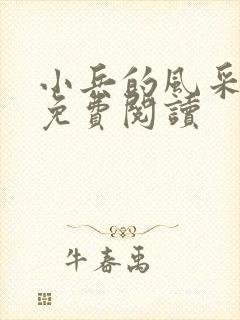 小兵的風采
免費閱讀
牛春禹